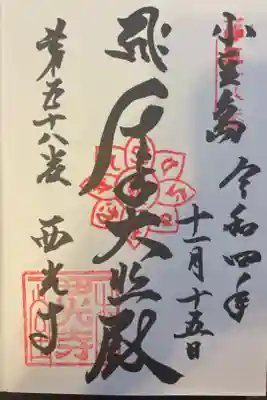 小豆島 令和四年
十一月十五日
大悲殿
第五十八番 西光寺
西光寺